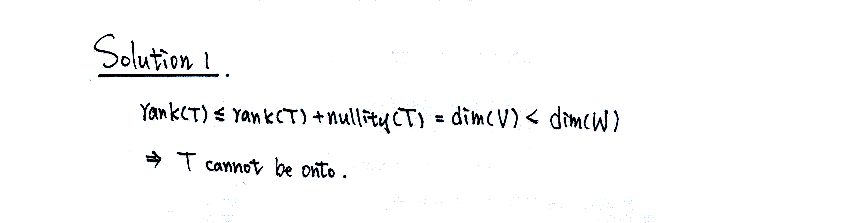 Solution 1.
rank(T) ≤ rank(T) + nullity(T) = dim(V) < dim(W)
⇒ T cannot be onto.